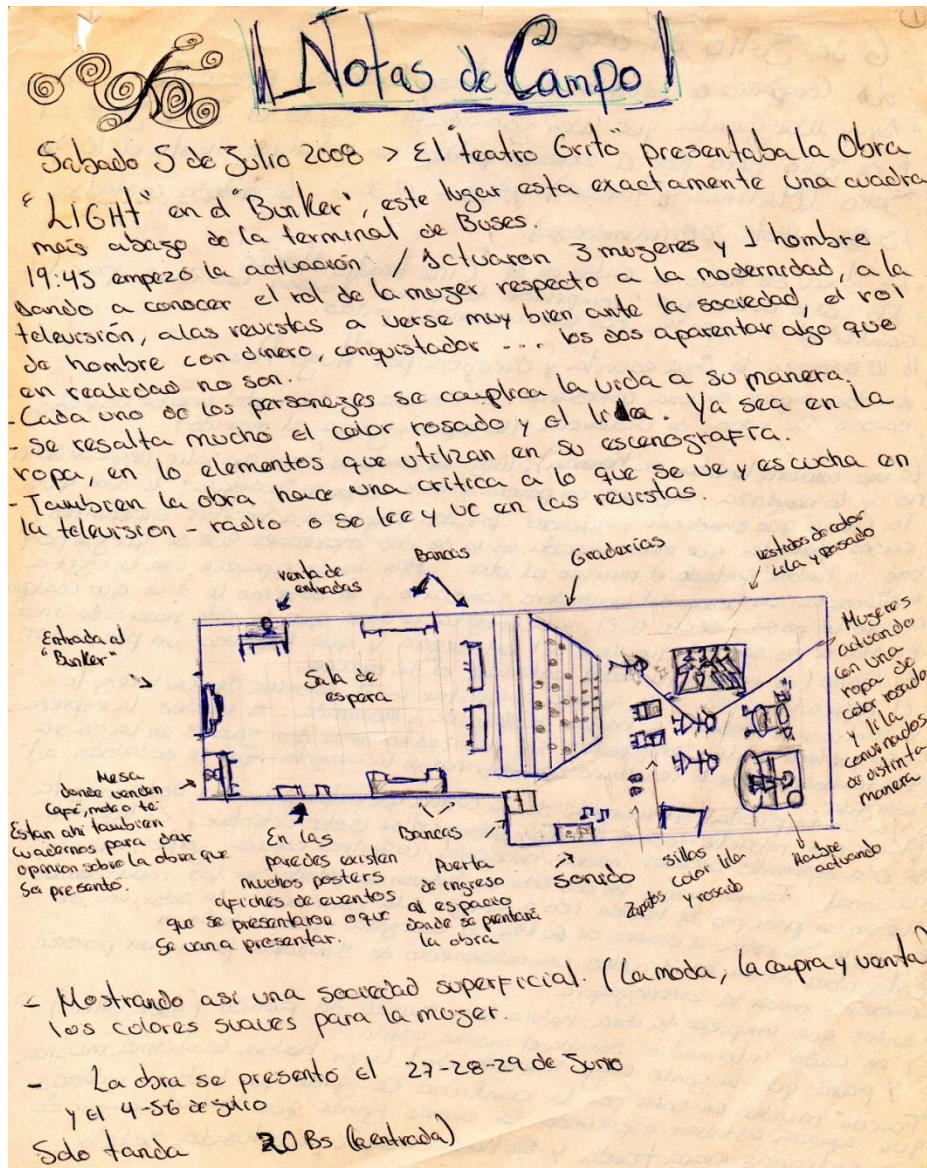 Notas de Campo
Sabado 5 de Julio 2008 > El "teatro Grito" presentaba la Obra
"LIGHT" en el "Bunker", este lugar esta exactamente una cuadra
mais abago de la terminal de Buses.
19:45 empezó la actuación / Actuaron 3 mugeres y 1 hombre
Dando a conocer el rol de la muger respecto a la modernidad, a la
televisión, alas revistas a verse muy bien ante la sociedad, el rol
de hombre con dinero, conquistador ... los dos aparentar algo que
en realidad no son.
- Cada uno de los personages se complica la vida a su manera.
- Se resalta mucho el color rosado y el lila. Ya sea en la
ropa, en lo elementos que utilizan en su escenografía.
- Tambien la obra hace una crítica a lo que se ve y escucha en
la television - radio o se lee y ve en las revistas.
Entrada al
"Bunker"
venta de
entradas
Bancas
Graderías
vestidos de color
lila y Rosado
Sala de
espera
Mugeres
actuando
con una
ropa de
color rosado
y lila
convinados
de distinta
manera
Mesa
donde venden
Café, mate o té
Estan ahi tambien
cuadernos para dar
opinion sobre la obra que
se presento.
En las
paredes existen
muchos posters
afiches de eventos
que se presentaron o que
se van a presentar.
Bancas
Puerta
de ingreso
al espacio
donde se prentará
la obra
Sonido
Zapatos
sillas
color lila
y rosado
Hombre
actuando
- Mostrando asi una sociedad superficial. (La moda, la compra y venta)
los colores suaves para la muger.
- La obra se presentó el 27-28-29 de Junio
y el 4-5 6 de julio
Solo tanda 20 Bs (la entrada)